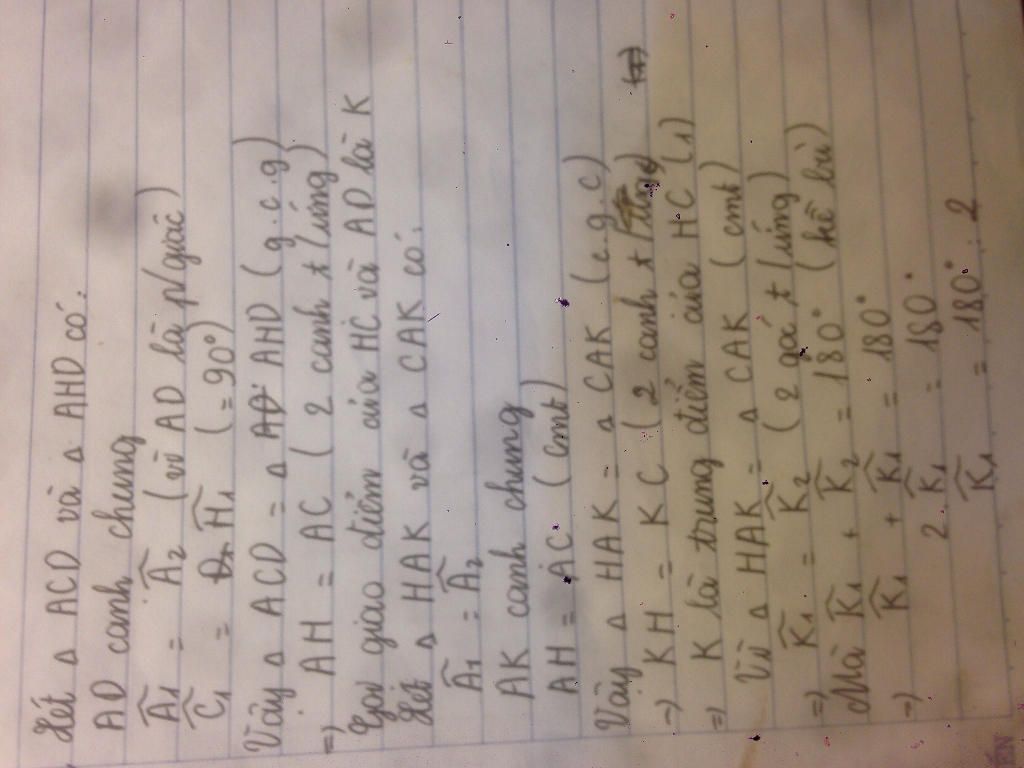 Xét Δ ACD và Δ AHD có:
AD cạnh chung
Â1 = Â2 (vì AD là p/giác)
Ĉ1 = Ĥ1 (= 90°)
Vậy Δ ACD = Δ AHD (g.c.g)
=) AH = AC (2 cạnh t/ứng)
Gọi giao điểm của HC và AD là K
Xét Δ HAK và Δ CAK có:
Â1 = Â2
AK cạnh chung
AH = AC (cmt)
Vậy Δ HAK = Δ CAK (c.g.c)
=) KH = KC (2 cạnh t/ứng)
=) K là trung điểm của HC (1)
Vì Δ HAK = Δ CAK (cmt)
=) K̂1 = K̂2 (2 góc t/ứng)
Mà K̂1 + K̂2 = 180° (kề bù)
=) K̂1 + K̂1 = 180°
2 K̂1 = 180°
K̂1 = 180° : 2
ẾN